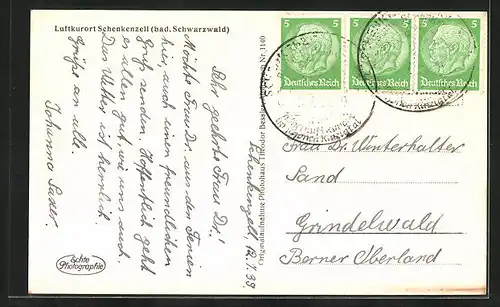 Luftkurort Schenkenzell (bad. Schwarzwald)
Schenkenzell, 12.7.39
Sehr geehrte Frau Dr.!
Möchte Frau Dr. aus den Ferien
hier, auch einen freundlichen
Gruß senden. Hoffentlich geht
es allen gut, wie uns auch.
Das Wetter ist herrlich.
Grüße an alle.
Johanna
Echte
Photographie
Originalaufnahme Photohaus Theodor Nr. 1140
5 5 5
Deutsches Reich Deutsches Reich Deutsches Reich
Frau Dr. Winterhalter
Sand
Grindelwald
Berner Oberland